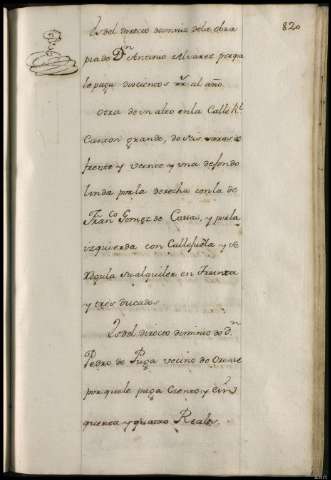 820
Es del directo dominio de la obra
pia de Dn Antonio Alvarez porque
le paga doscientos rs al año.
Otra de un alto en la Calle Rl
Canton grande, de seis varas de
frente y veinte y una de fondo
linda por la derecha con la de
Franco Gomez de Casias, y por la
izquierda con Callejuela y se
regula su alquiler en Treinta
y tres ducados
Es del directo dominio de Dn
Pedro de Puga vecino de Orense
por quale paga Ciento y Cin
quenta y quatro Reales